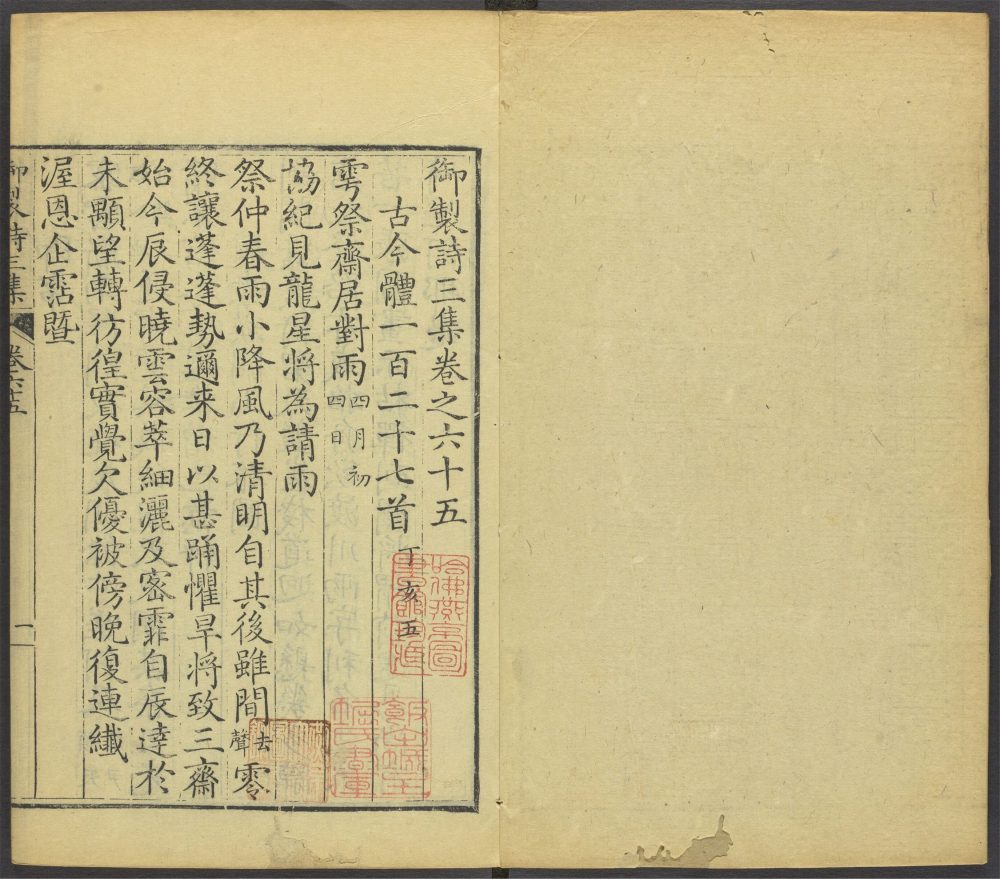 御製詩三集卷之六十五
古今體一百二十七首丁亥五
雩祭齋居對雨四月初四日
協紀見龍星將為請雨
祭仲春雨小降風乃清明自其後雖間去聲零
終讓蓬蓬勢邇来日以甚踊懼旱將致三齋
始今辰侵曉雲容萃細灑及密霏自辰達於
未顒望轉彷徨實覺欠優被傍晚復連纖
渥恩企霑曁
御製詩三集
卷六十五
一
哈佛燕京圖